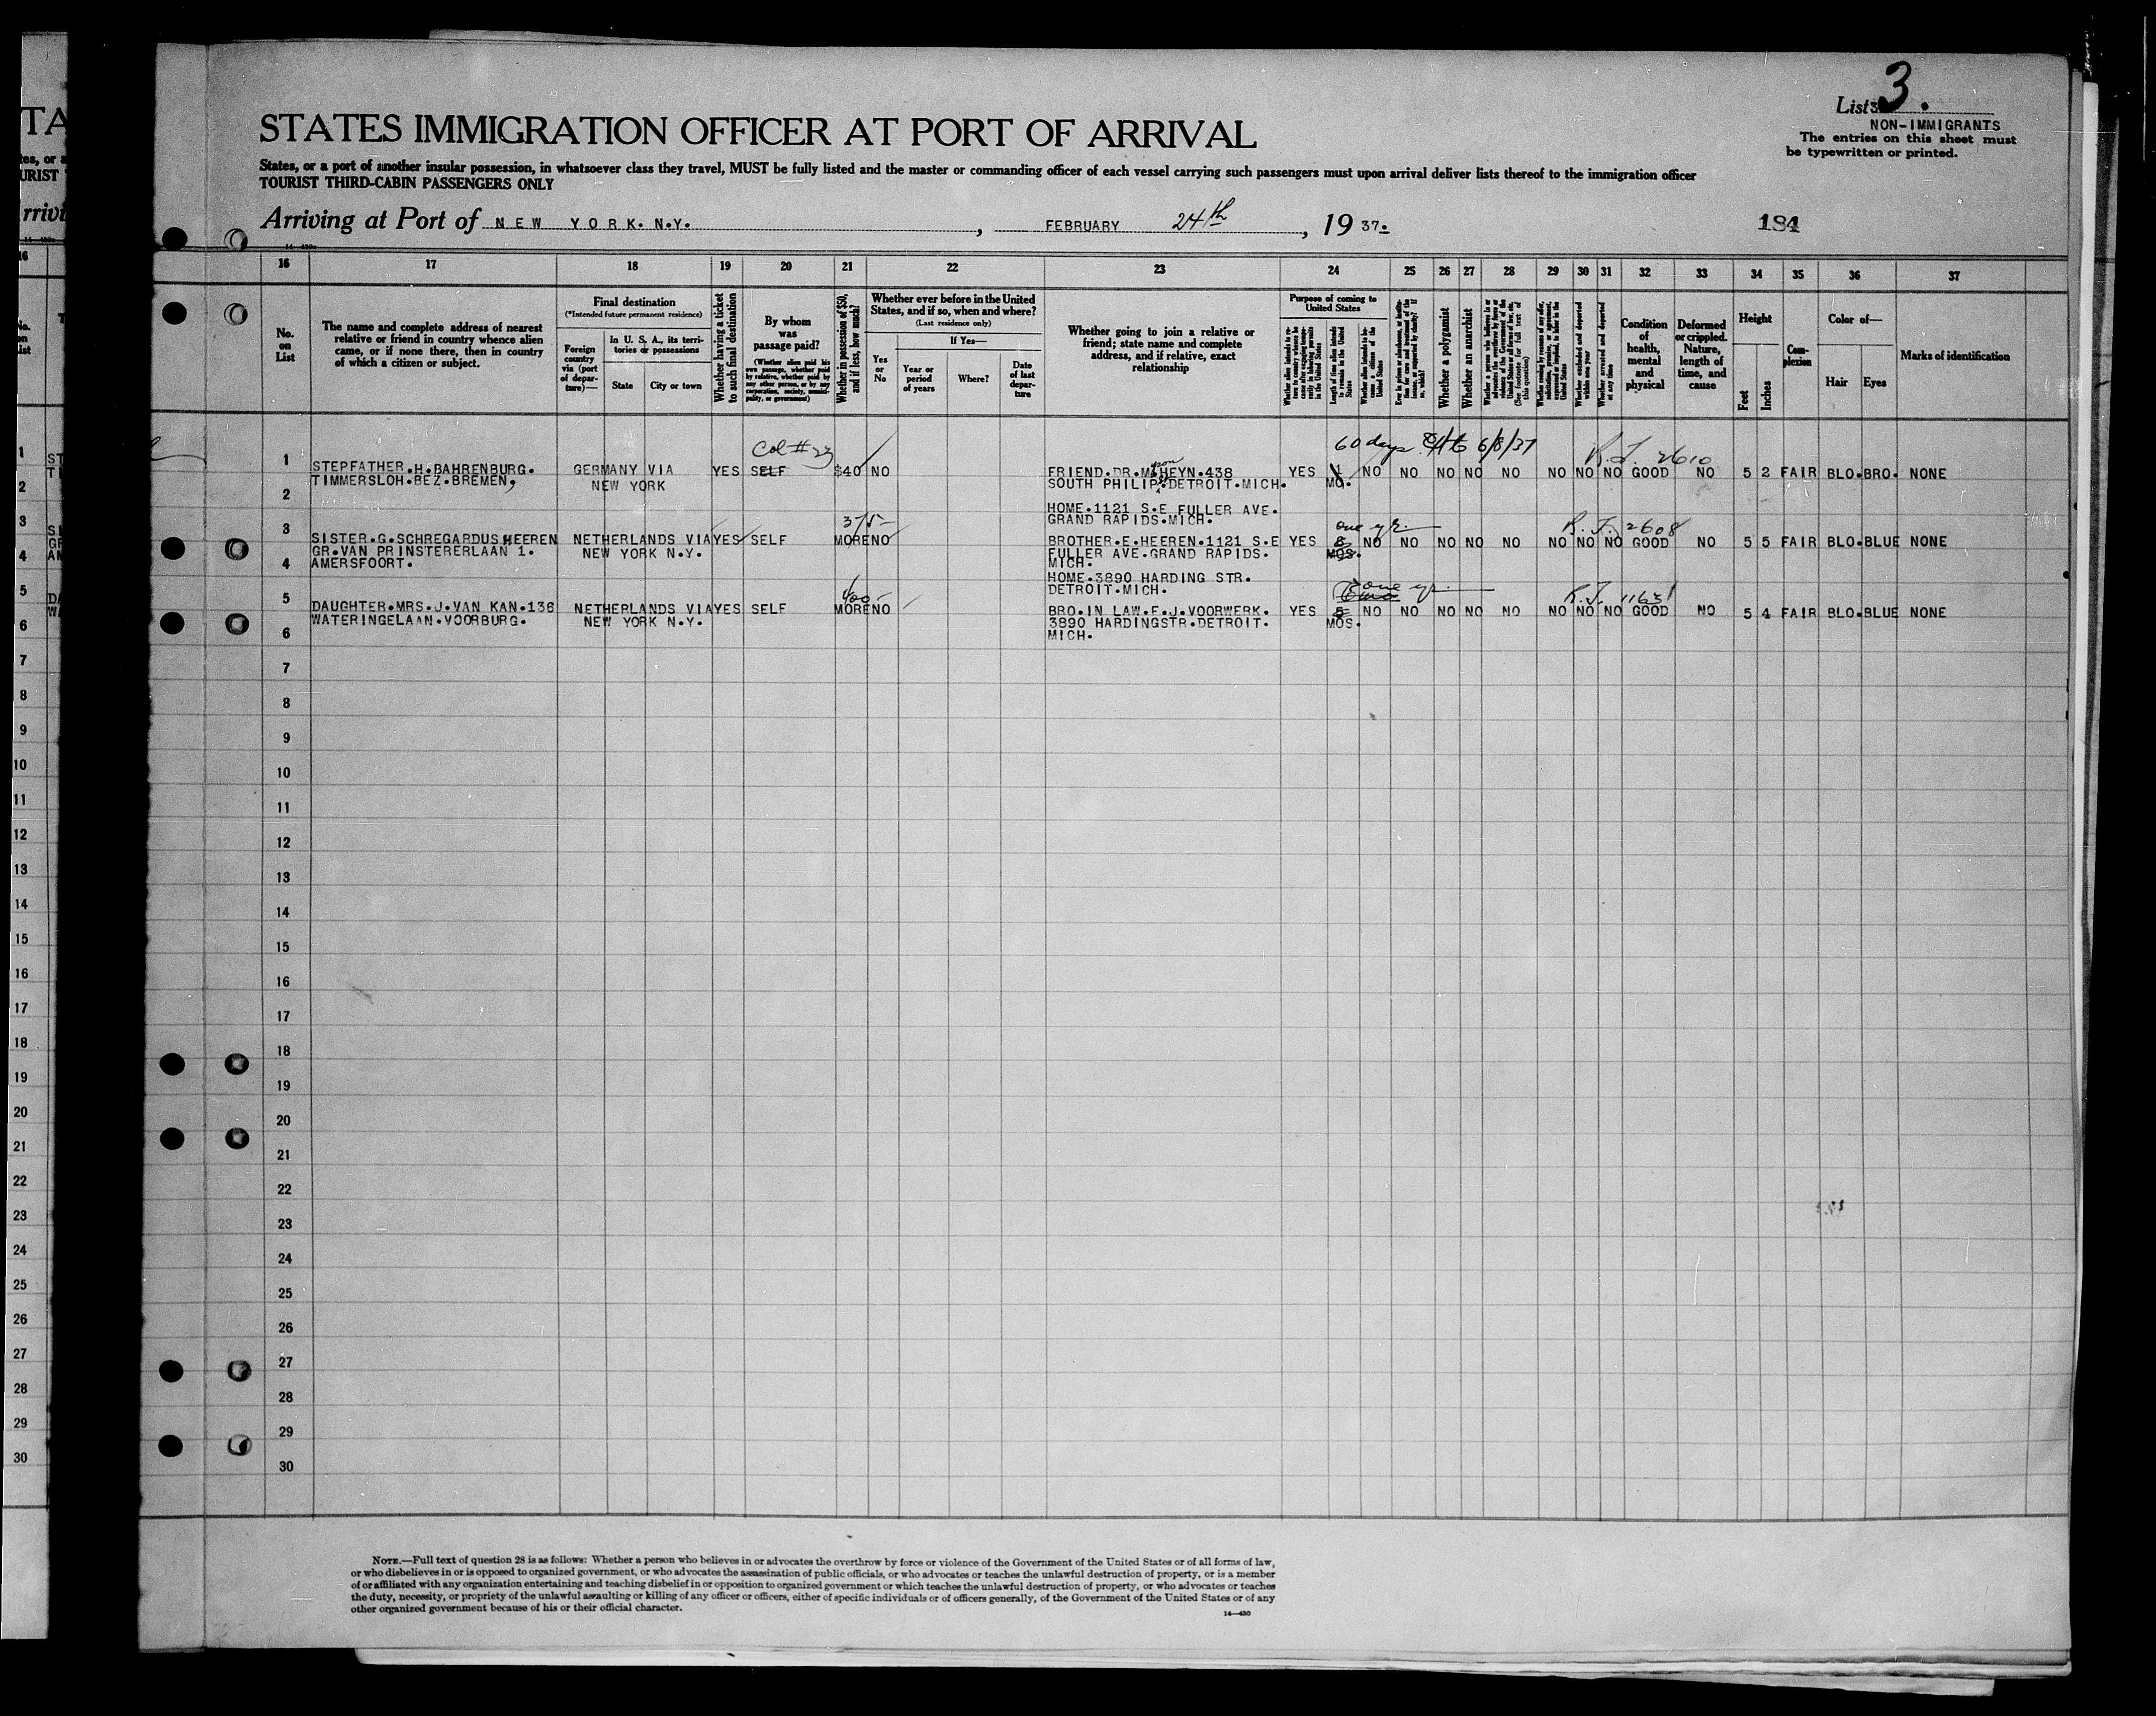 List 3.
NON-IMMIGRANTS
The entries on this sheet must
be typewritten or printed.
STATES IMMIGRATION OFFICER AT PORT OF ARRIVAL
States, or a port of another insular possession, in whatsoever class they travel, MUST be fully listed and the master or commanding officer of each vessel carrying such passengers must upon arrival deliver lists thereof to the immigration officer
TOURIST THIRD-CABIN PASSENGERS ONLY
Arriving at Port of NEW YORK. N.Y. , FEBRUARY 24th , 19 37.
184
16 17 18 19 20 21 22 23 24 25 26 27 28 29 30 31 32 33 34 35 36 37
No. on List
The name and complete address of nearest
relative or friend in country whence alien
came, or if none there, then in country
of which a citizen or subject.
Final destination
(*Intended future permanent residence)
Foreign country via (port of departure)—
In U. S. A., its territories or possessions
State
City or town
Whether having a ticket to such final destination
By whom was passage paid?
(Whether alien paid his own passage, whether paid by relative, whether paid by any other person, or by any corporation, society, municipality, or government)
Whether in possession of $50, and if less, how much?
Whether ever before in the United
States, and if so, when and where?
(Last residence only)
Yes or No
If Yes—
Year or period of years
Where?
Date of last departure
Whether going to join a relative or
friend; state name and complete
address, and if relative, exact
relationship
Purpose of coming to United States
Length of time alien intends to remain in the United States
Whether a polygamist
Whether an anarchist
Whether excluded and deported within one year
Whether arrested and deported at any time
Condition of health, mental and physical
Deformed or crippled. Nature, length of time, and cause
Height
Feet
Inches
Complexion
Color of—
Hair
Eyes
Marks of identification
Col #23
60 days 6/8/37
R.J. 2610
1 STEPFATHER.H.BAHRENBURG. GERMANY VIA YES SELF $40 NO FRIEND.DR.M HEYN.438 YES 1 NO NO NO NO NO NO NO NO GOOD NO 5 2 FAIR BLO.BRO. NONE
TIMMERSLOH.BEZ.BREMEN, NEW YORK SOUTH PHILIP.DETROIT.MICH. MO.
2
HOME.1121 S.E FULLER AVE.
GRAND RAPIDS.MICH.
375- one yr. R.J. 2608
3 SISTER.G.SCHREGARDUS HEEREN NETHERLANDS VIA YES SELF MORE NO BROTHER.E.HEEREN.1121 S.E YES NO NO NO NO NO NO NO NO GOOD NO 5 5 FAIR BLO.BLUE NONE
GR.VAN PRINSTERERLAAN 1. NEW YORK N.Y. FULLER AVE.GRAND RAPIDS. MOS.
4 AMERSFOORT. MICH.
HOME.3890 HARDING STR.
DETROIT.MICH.
one yr.
5 DAUGHTER.MRS.J.VAN KAN.136 NETHERLANDS VIA YES SELF MORE NO BRO.IN LAW.F.J.VOORWERK. YES NO NO NO NO NO NO NO NO GOOD NO 5 4 FAIR BLO.BLUE NONE
WATERINGELAAN.VOORBURG. NEW YORK N.Y. 3890 HARDINGSTR.DETROIT. MOS.
6 MICH.
7
8
9
10
11
12
13
14
15
16
17
18
19
20
21
22
23
24
25
26
27
28
29
30
NOTE.—Full text of question 28 is as follows: Whether a person who believes in or advocates the overthrow by force or violence of the Government of the United States or of all forms of law,
or who disbelieves in or is opposed to organized government, or who advocates the assassination of public officials, or who advocates or teaches the unlawful destruction of property, or is a member
of or affiliated with any organization entertaining and teaching disbelief in or opposition to organized government or which teaches the unlawful destruction of property, or who advocates or teaches
the duty, necessity, or propriety of the unlawful assaulting or killing of any officer or officers, either of specific individuals or of officers generally, of the Government of the United States or of any
other organized government because of his or their official character.
14—430